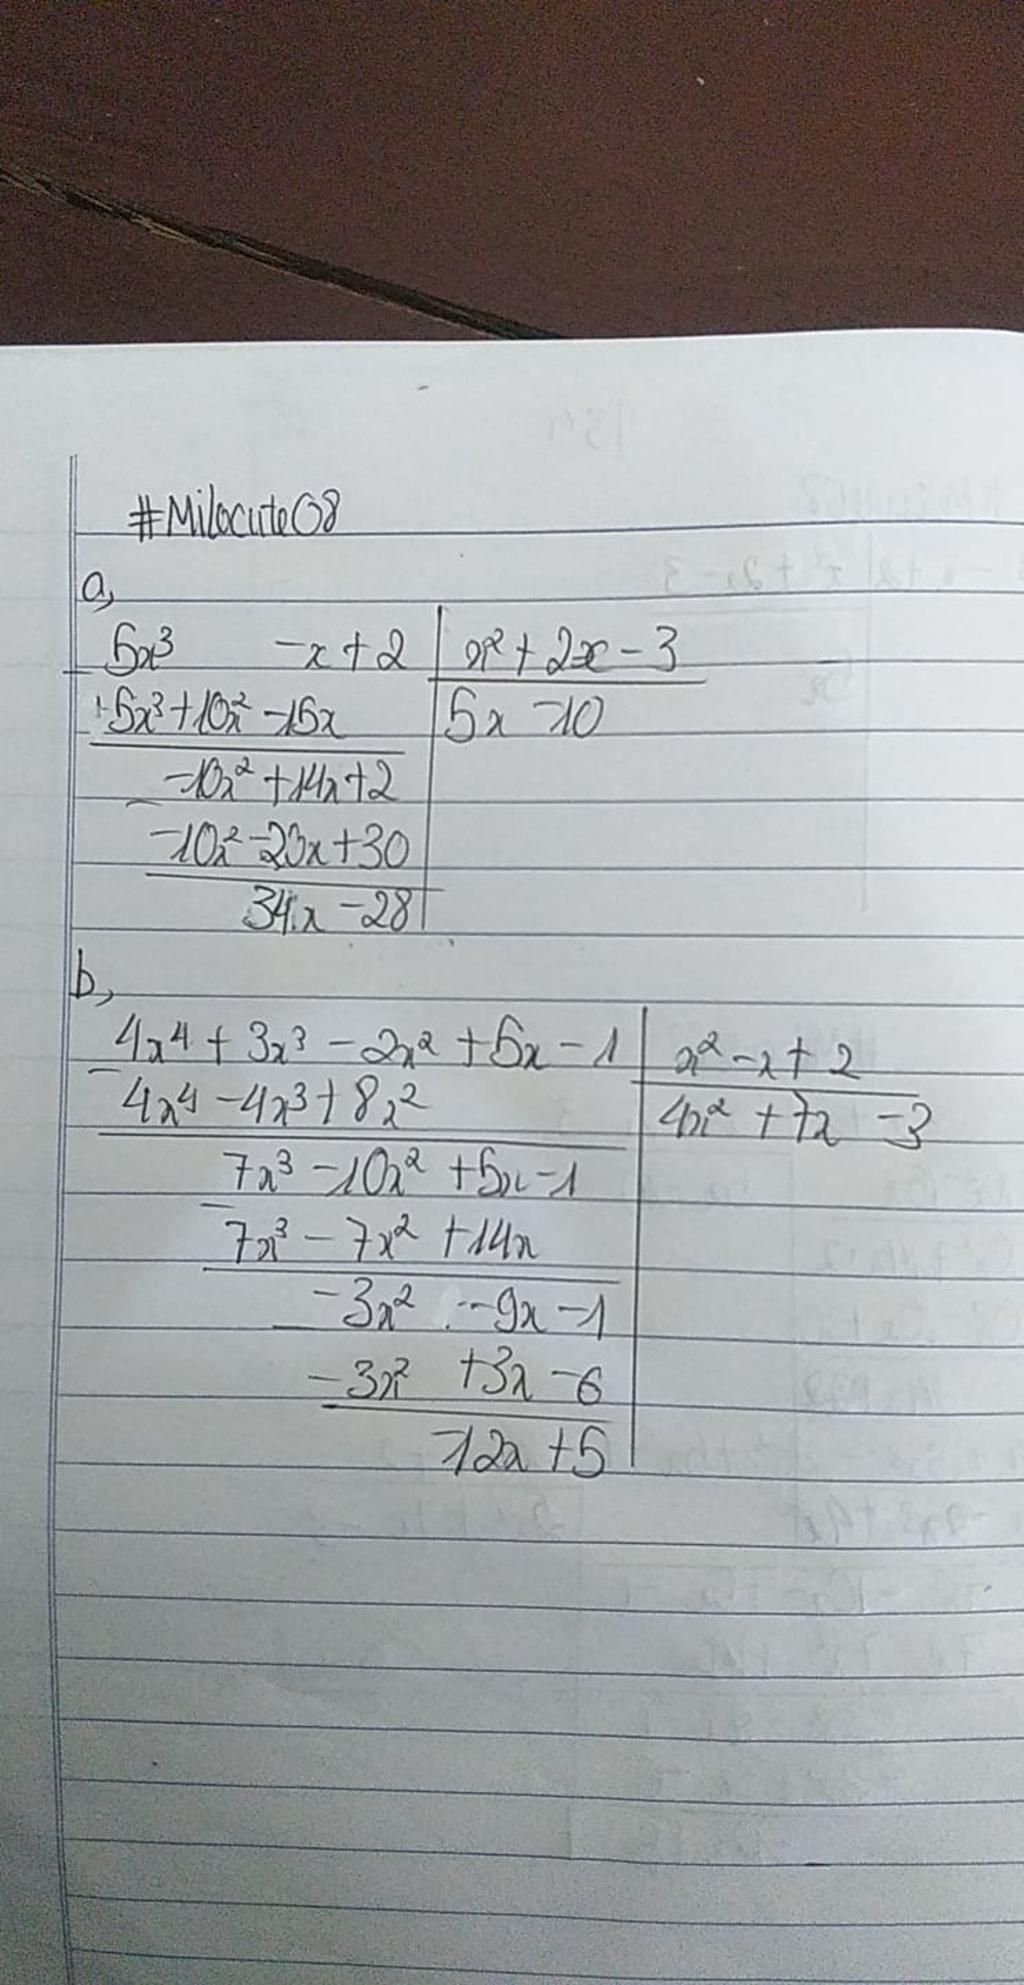 #Milocute08
a,
5x³ -x+2 | x²+2x-3
5x³+10x²-15x | 5x -10
-10x²+14x+2
-10x²-20x+30
34x-28
b,
4x⁴+3x³-2x²+5x-1 | x²-x+2
4x⁴-4x³+8x² | 4x²+7x-3
7x³-10x²+5x-1
7x³-7x²+14x
-3x² -9x-1
-3x² +3x-6
-12x+5